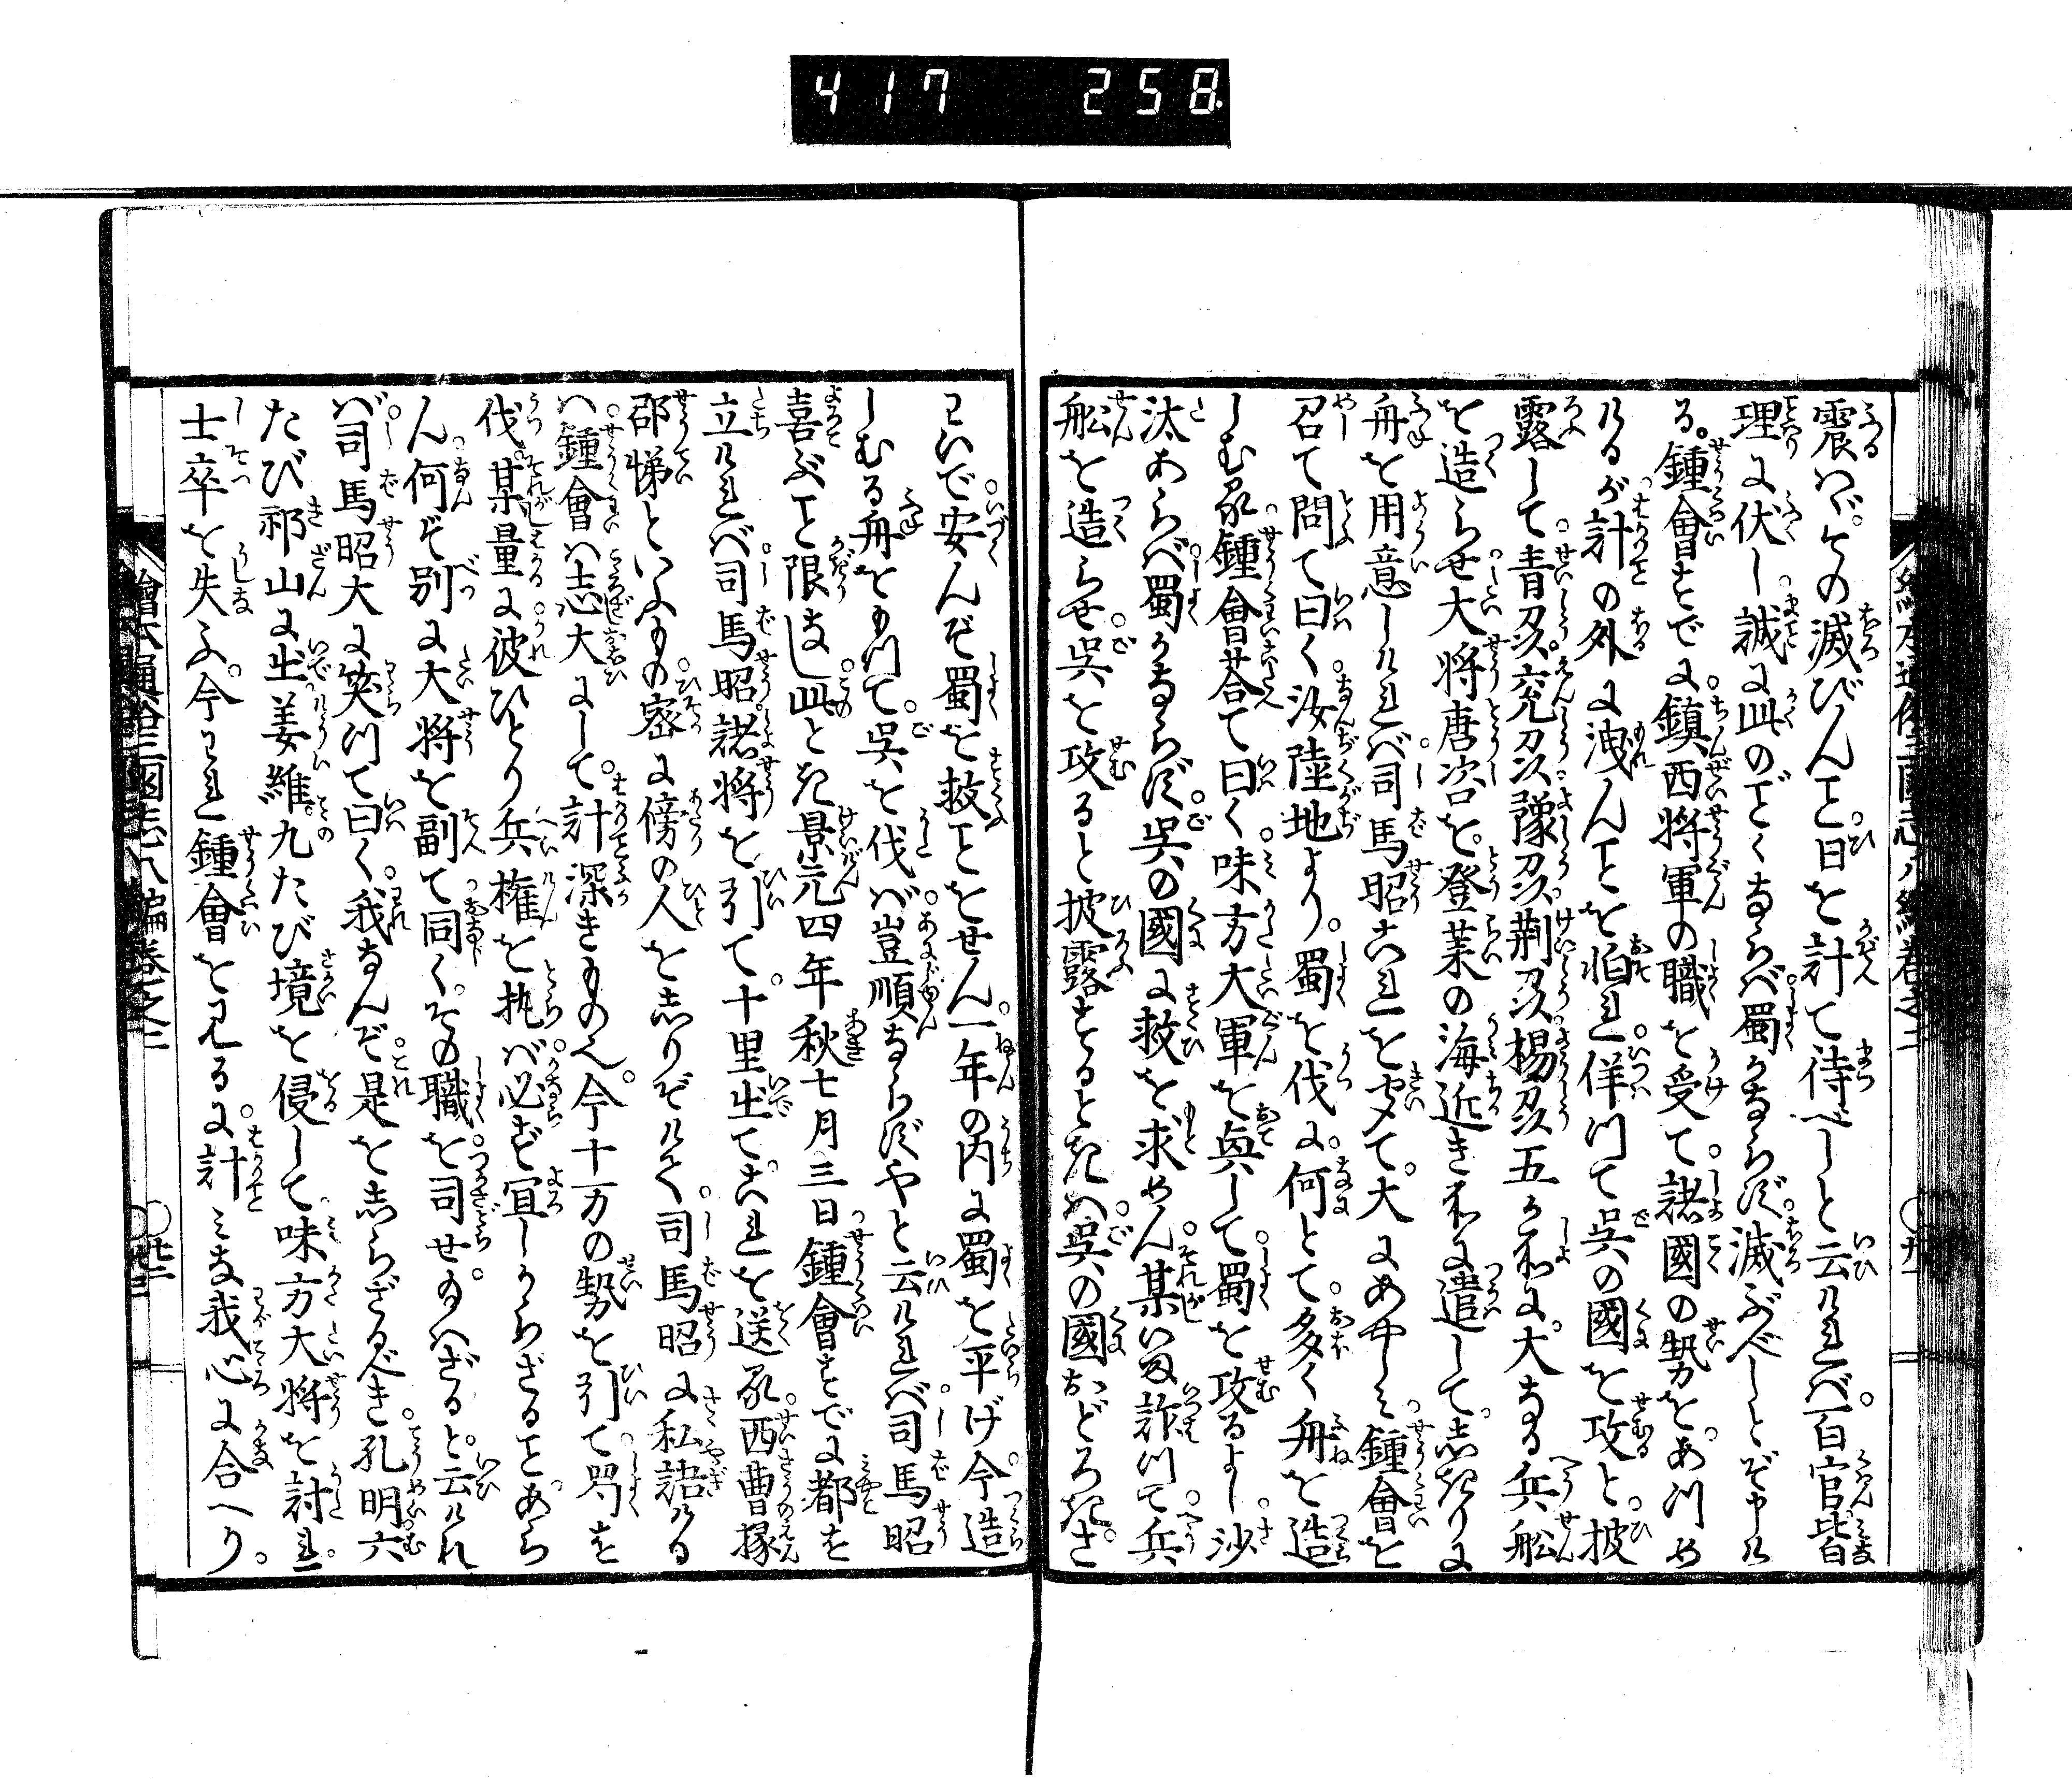 417 258
震ハゞ。その滅びんこと。日を計て待べしと云ければ。百官皆
理に伏し。誠に此のごとくならば蜀かならず滅ぶべしとぞ申け
る。鍾會すでに。鎮西将軍の職を受て。諸國の勢をあつめ
けるが。計の外に洩んことを怕れ。佯つて呉の國を攻と披
露して。青州。兖州。豫州。荊州。楊州五か所に。大なる兵舩
を造らせ。大将唐咨を。登莱の海近き所に遣して。しきりに
舟を用意しければ。司馬昭これを聞て。大にあやしみ。鍾會を
召て問て曰く。汝陸地より。蜀を伐に。何とて。多く舟を造
しむる。鍾會荅て曰く。味方大軍を興して。蜀を攻るよし。沙
汰あらば。蜀かならず。呉の國に救を求めん。某いま詐つて。兵
舩を造らせ。呉を攻ると披露するときハ。呉の國おどろき。さ
わいで。安んぞ蜀を救ことをせん。一年の内に蜀を平げ。今造
しむる舟をもつて。呉を伐バ。豈順ならずやと云ければ。司馬昭
喜ぶこと限なし。此とき景元四年秋七月三日。鍾會すでに都を
立ければ。司馬昭。諸将を引て。十里出て。これを送る。西曹掾
邵悌といふもの。密に傍の人をしりぞけて。司馬昭に私語ける
ハ。鍾會ハ志大にして。計深きものへ。今十万の勢を引て。蜀を
伐。某量に。彼ひとり兵権を执バ。必ず宜しからざることあら
ん。何ぞ別に大将を副て同く。その職を司せ玉ハざると。云けれ
バ。司馬昭大に笑つて曰く。我なんぞ是をしらざるべき。孔明六
たび祁山に出。姜維。九たび境を侵して。味方大将を討れ。
士卒を失ふ。今われ鍾會を見るに。計みな我心に合へり。
繪本通俗三國志八編巻之二
〇廿二